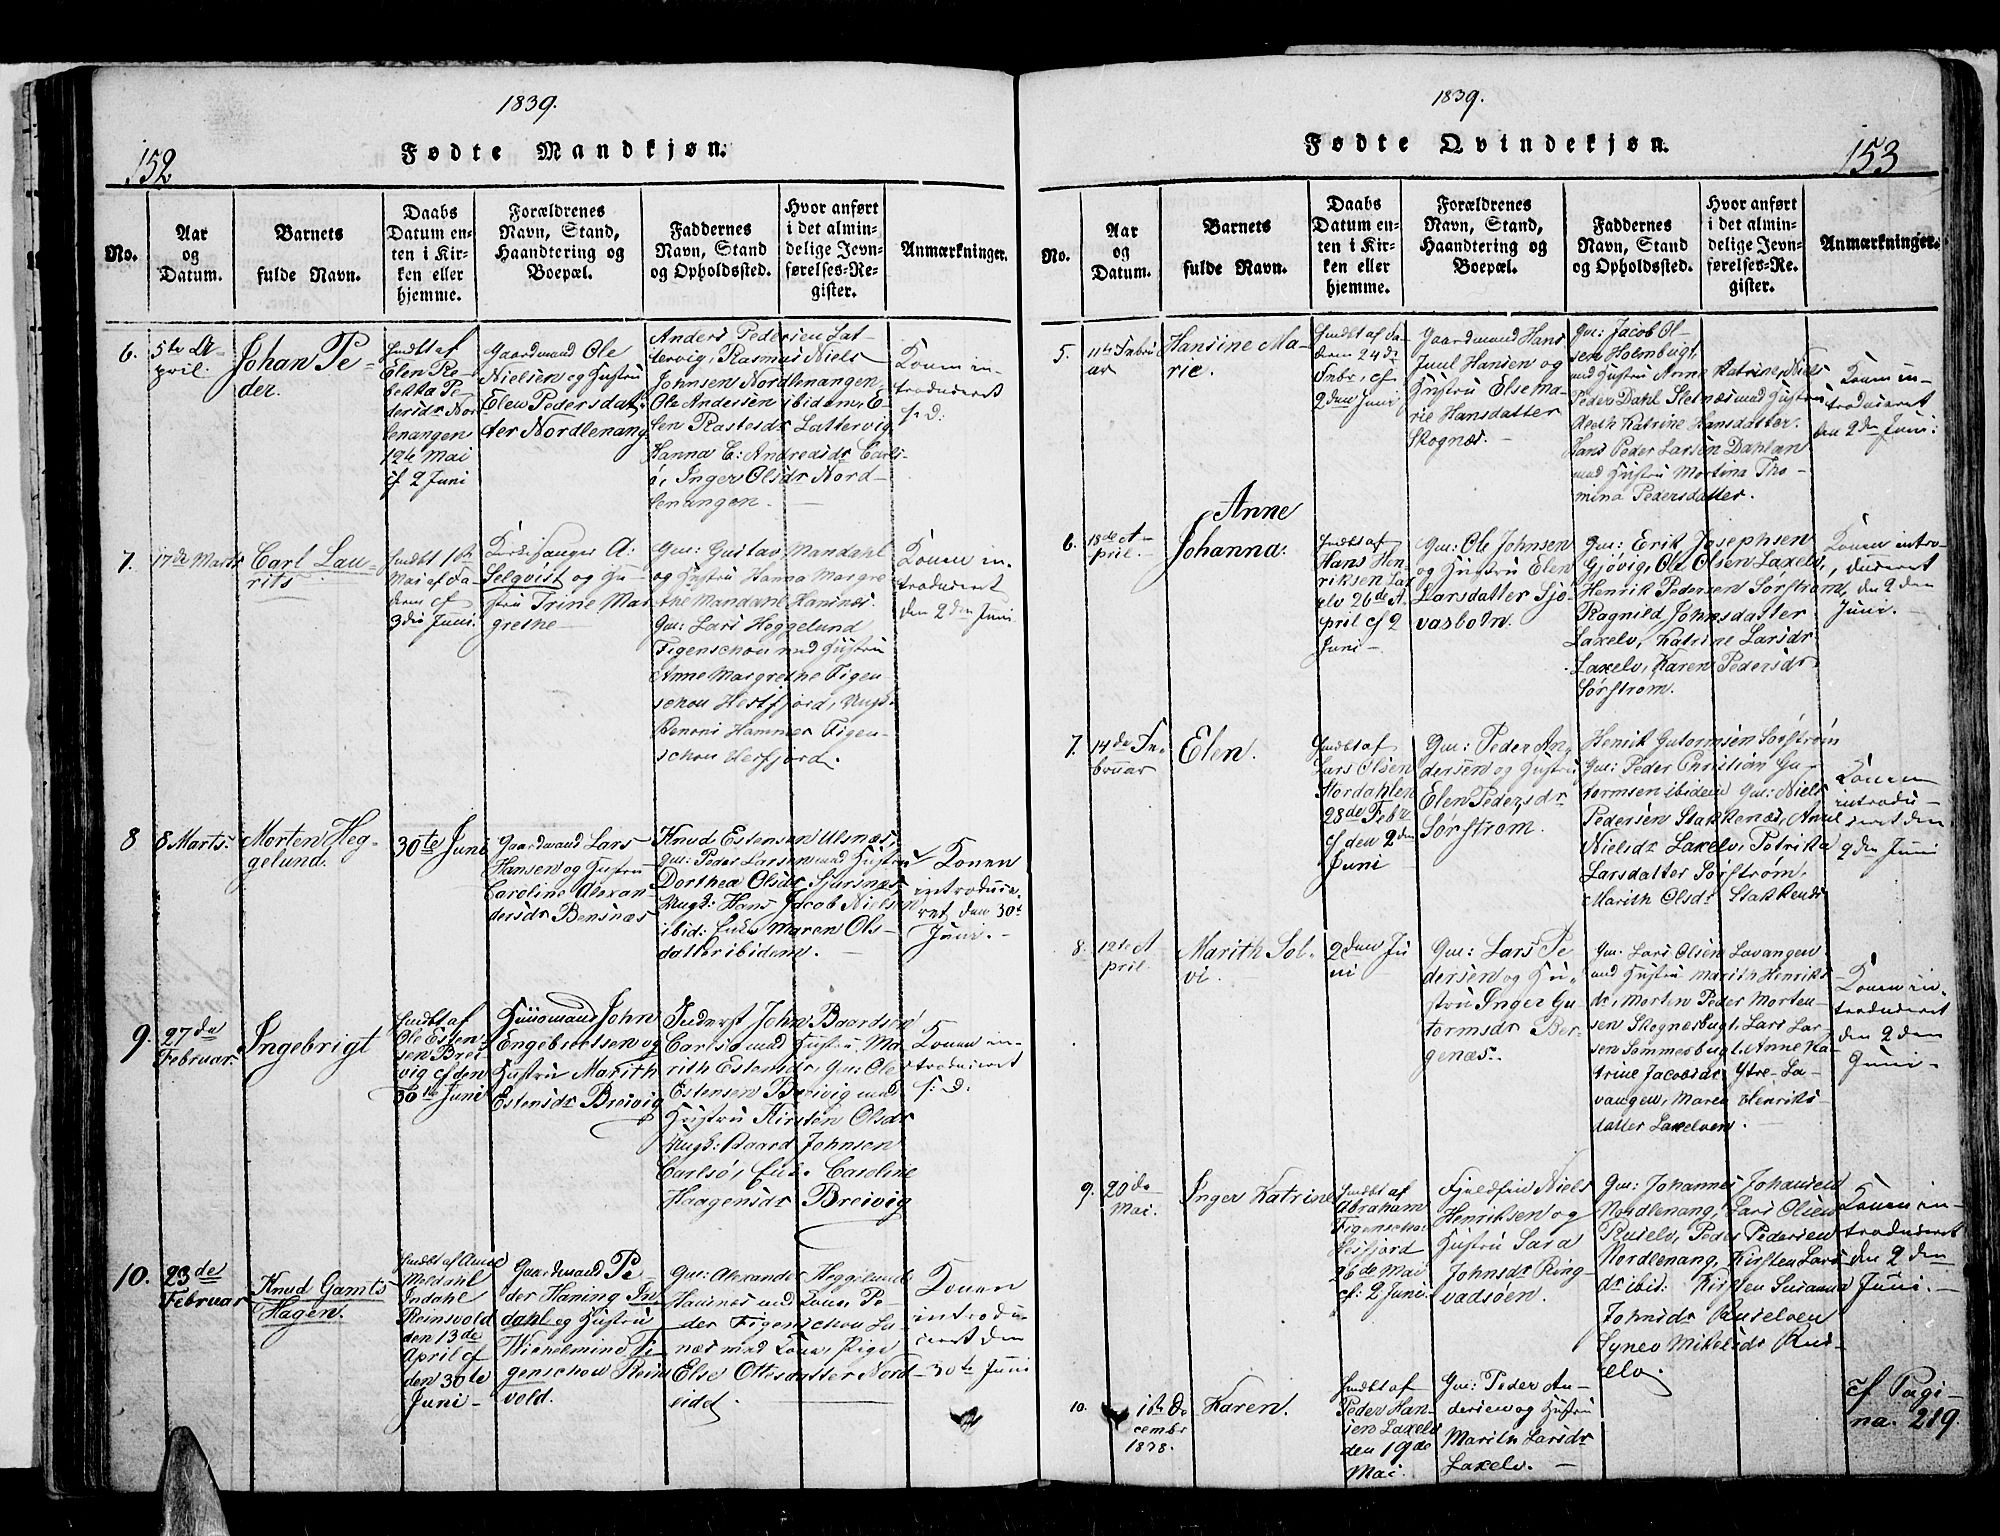 1839.
152
Fødte Mandkjøn.
No.
Aar
og
Datum.
Barnets
fulde Navn.
Daabs
Datum en-
ten i Kir-
ken eller
hjemme.
Forældrenes
Navn, Stand,
Haandtering og
Boepæl.
Faddernes
Navn, Stand
og Opholdssted.
Hvor anført
i det almin-
delige Jevn-
førelses-Re-
gister.
Anmærkninger.
6.
5te A-
pril.
Johan Pe-
der.
hmdbt af
Elen Re-
bekka Pe-
dersdr Nor
lenangen
12te Mai
cf 2 Juni
Gaardmand Ole
Nielsen og Hustru
Elen Pedersdat-
ter Nordlenang
Anders Pedersen Lat-
tervig, Rasmus Niels
Johnsen Nordlenangen,
Ole Andersen ibidem, E-
len Rastesdr Lattervig
Hanna E: Andreasdr Carls-
ø, Inger Olsdr Nord-
lenangen.
Konen in-
troduceret
s: D:
7.
17de Marts
Carl Lau-
rits.
hmdbt 1ste
Mai af Fa-
deren cf
3die Juni.
Kirkesanger A:
Selqvist og Hu-
stru Trine Mar
grethe
Gm: Gustav Mandahl
og Hustru Hanna Margre
the Mandahl Hansnæs.
Gm: Lars Heggelund
Figenschou med Hustru
Anne Margrethe Figen
schou Hesfjord, Ungk:
Benoni Hammer Figen-
schou Hesfjord.
Konen in-
troduceret
den 2den Juni
8
8 Marts.
Morten Heg-
gelund.
30te Juni
Gaardmand Lars
Hansen og Hustru
Caroline Alexan
dersdr Bensnæs
Knud Estensen Ulsnæs,
Gm: Peder Larsen med Hustru
Dorthea Olsdr Sjursnæs,
Ungk: Hans Jacob Nielsen
ibid: Enke Maren Ols-
datter ibidem.
Konen
introduce-
ret den 30te
Juni.
9.
27de
Februar.
Ingebrigt
hmdbt af
Ole Esten-
sen Brei
vig cf den
30te Juni
Huusmand John
Engebretsen og
Hustru Marith
Estensdr Breivig
Inderst John Baardsen
Carlsø med Hustru Ma-
rith Estensdr, Gm: Ole
Estensen Breivig med
Hustru Kirsten Olsdr
Ungk: Baard Johnsen
Carlsø, Enk. Caroline
Haagensdr Breivig
Konen in-
troduceret
s: D:
10.
23de
Februar
Knud Gamts
Hagen.
hmdbt af Anne
Meldahl
Indahl
Reinsvold
den 13de
April cf
den 30te
Juni
Gaardmand Pe
der Haning In
dahl og Hustru
Wilhelmine Fi
genschou Rein
vold.
Gm: Alexander Heggelund
Hansnæs med Kone, Pe-
der Figenschou La-
næs med Kone, Pige
Else Ottesdatter Nord
eidet.
Konen
introdu-
ceret den
30te Juni
1839.
153
Fødte Qvindekjøn.
No.
Aar
og
Datum.
Barnets
fulde Navn.
Daabs
Datum en-
ten i Kir-
ken eller
hjemme.
Forældrenes
Navn, Stand,
Haandtering og
Boepæl.
Faddernes
Navn, Stand
og Opholdssted.
Hvor anført
i det almin-
delige Jevn-
førelses-Re.
gister.
Anmærkninger.
5.
11te Febru
ar
Hansine Ma-
rie.
hmdbt af Fa-
deren 24de
Febr, cf
2den Juni
Gaardmand Hans
Juul Hansen og
Hustru Else Ma-
rie Hansdatter
Skognæs.
Gm: Jacob Ol-
sen Holmbugt,
med Hustru Anne Katrine, Niels
Peder Dahl Sletnæs med Hustru
Aleth Katrine Hansdatter.
Hans Peder Larsen Dahlan
med Hustru Martina Tho-
mina Pedersdatter.
Konen in-
troduceret
den 2den Juni.
6.
18de A-
pril.
Anne
Johanna.
hmdbt af
Hans Hen-
riksen Lax
elv 26de A-
pril cf 2
Juni
Gm: Ole Johnsen
og Hustru Elen
Larsdatter Sjø-
vasbotn.
Gm: Erik Josephsen
Gjøvig, Ole Olsen Laxelv,
Henrik Pedersen Sørstrøm,
Ragnild Johnsdatter
Laxelv, Katrine Larsdr
Laxelv, Karen Pedersdr
Sørstrøm.
Konen intro-
duceret
den 2den
Juni.
7.
14de Fe-
bruar
Elen.
hmdbt af
Lars Olsen
Nordahlen
28de Febr
cf den 2den
Juni
Gm: Peder An-
dersen og Hustru
Elen Pedersdr
Sørstrøm.
Henrik Gutormsen Sørstrøm
Gm: Peder Christian Gu-
tormsen ibidem Gm: Niels
Pedersen Stakkenæs, Anne
Nielsdr Laxelv, Petrika
Larsdatter Sørstrøm,
Marith Olsdr Stakkenæs
Konen
introdu-
ceret den
2den Juni
8.
12te A-
pril.
Marith Sol-
vi.
2den Ju
ni
Gm: Lars Pe-
dersen og Hu-
stru Inger Gu-
tormsdr Ber-
genæs.
Gm: Lars Olsen Lavangen
med Hustru Marith Henriks
dr, Morten Peder Morten-
sen Skognæsbugt, Lars Lar-
sen Sommerbugt, Anne Ka-
trine Jacobsdr Ytre-La-
vangen, Maren Henriks-
datter Laxelven.
Konen in-
troduceret
den 2den
Juni
9.
20de
Mai.
Inger Katrine
hmdbt af
Abraham
Figenschou
Hesfjord
26de Mai
cf: 2 Juni.
Fjeldfin Niels
Henriksen og
Hustru Sara
Johnsdr Ring
vadsøen.
Gm: Johannes Johansen
Nordlenang, Lars Olsen
Ruselv, Peder Pedersen
Nordlenang, Kirsten Lars
dr ibid: Kirsten Susanna
Johnsdr Ruselven
Synev Mikelsdr Rus-
elv.
Konen in-
troduceret
den 2den
Juni.
10.
1ste De
cembr
1838.
Karen.
hmdbt af
Peder Han-
sen Laxelv
den 19de
Mai.
Gm: Peder An-
dersen og Hustru
Marith Larsdr
Laxelv.
cf Pagi-
na. 219